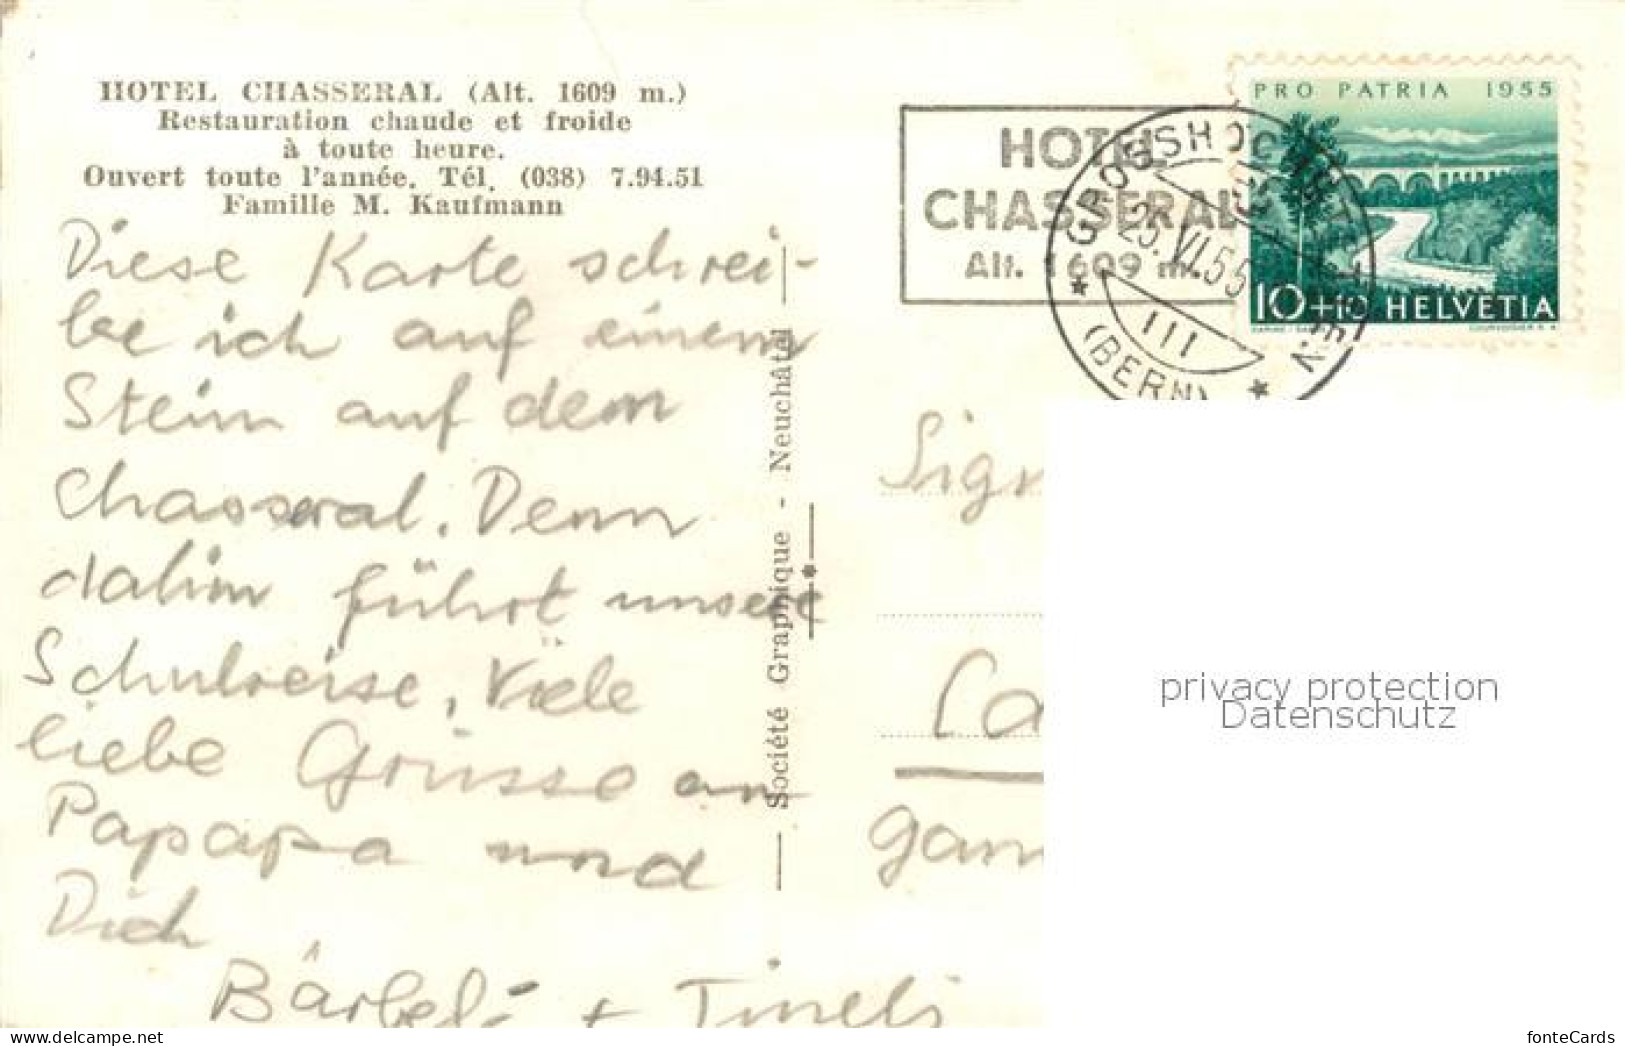 HOTEL CHASSERAL (Alt. 1609 m.)
Restauration chaude et froide
à toute heure.
Ouvert toute l'année. Tél. (038) 7.94.51
Famille M. Kaufmann
Diese Karte schrei-
be ich auf einem
Stein auf dem
Chasseral. Denn
dahin führt unsere
Schulreise. Viele
liebe Grüsse an
Papapa und
Dich
Bärbel + Tineli
Société Graphique - Neuchâtel
HOTEL
CHASSERAL
Alt. 1609 m.
GROSSHÖCHSTETTEN
25.VI.55
III
(BERN)
PRO PATRIA 1955
10+10 HELVETIA
COURVOISIER S.A.
Sign
Ca
gan
privacy protection
Datenschutz
fonteCards